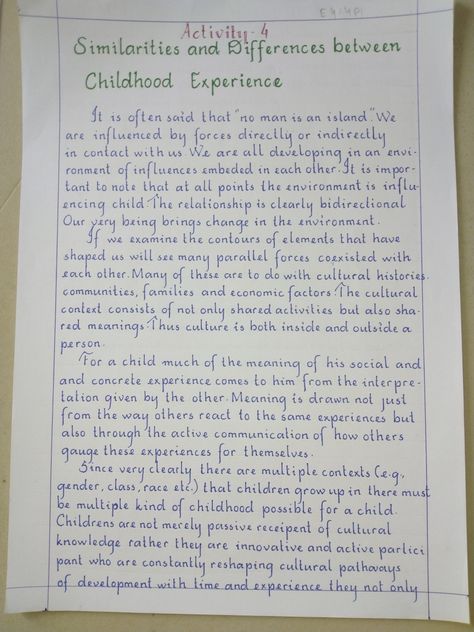 Activity-4
Similarities and Differences between
Childhood Experience
It is often said that "no man is an island". We
are influenced by forces directly or indirectly
in contact with us. We are all developing in an envi-
ronment of influences embeded in each other. It is impor-
tant to note that at all points the environment is influ-
encing child. The relationship is clearly bidirectional.
Our very being brings change in the environment.
If we examine the contours of elements that have
shaped us we will see many parallel forces coexisted with
each other. Many of these are to do with cultural histories,
communities, families and economic factors. The cultural
context consists of not only shared activities but also sha-
red meanings. Thus culture is both inside and outside a
person.
For a child much of the meaning of his social and
and concrete experience comes to him from the interpre-
tation given by the other. Meaning is drawn not just
from the way others react to the same experiences but
also through the active communication of how others
gauge these experiences for themselves.
Since very clearly there are multiple contexts (e.g.,
gender, class, race etc.) that children grow up in there must
be multiple kind of childhood possible for a child.
Childrens are not merely passive receipent of cultural
knowledge rather they are innovative and active partici
pant who are constantly reshaping cultural pathways
of development with time and experience they not only